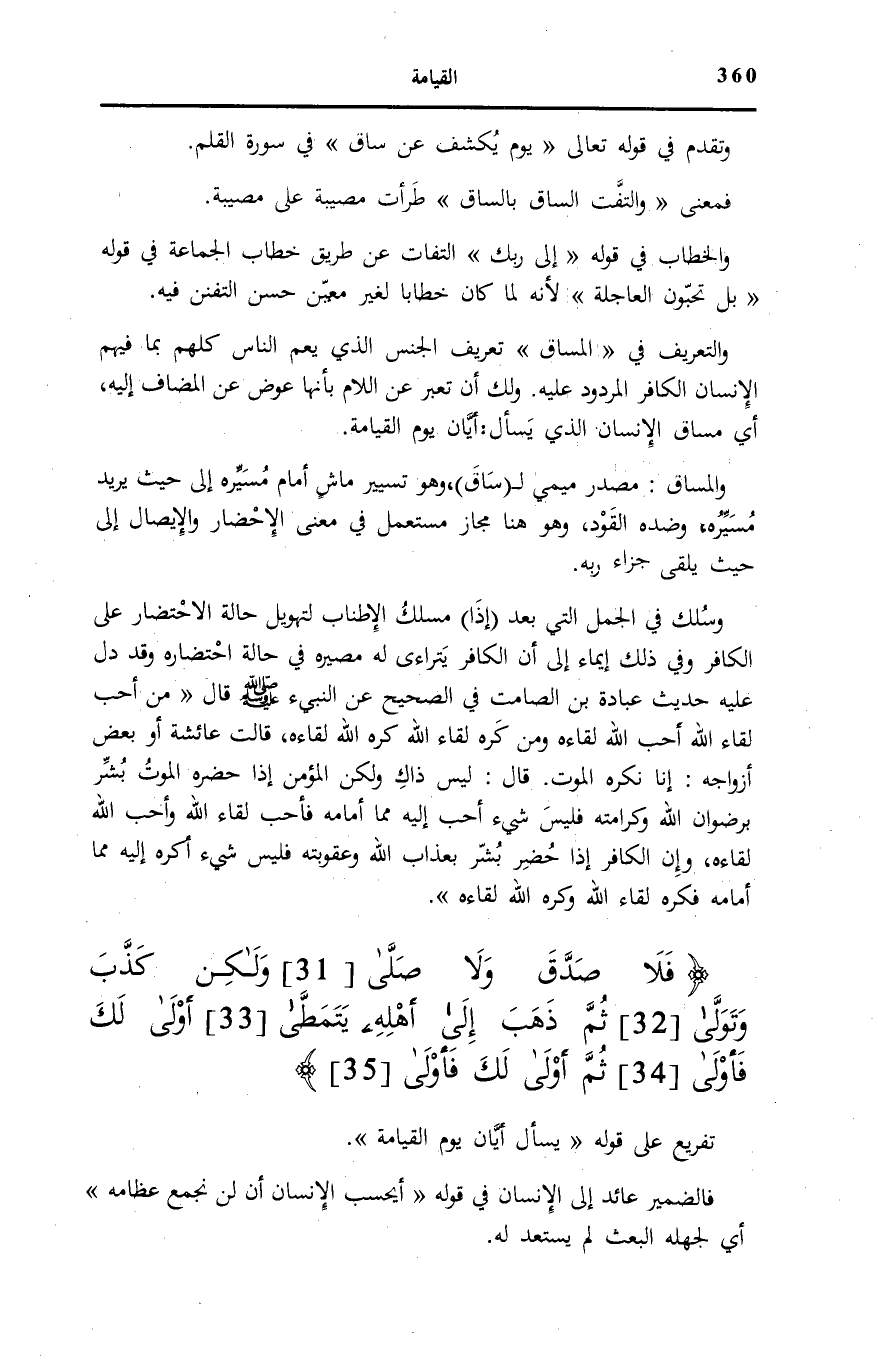 360 القيامة
وتقدم في قوله تعالى « يوم يُكشف عن ساق » في سورة القلم.
فمعنى « والتفَّت الساق بالساق » طَرأت مصيبة على مصيبة.
والخطاب في قوله « إلى ربك » التفات عن طريق خطاب الجماعة في قوله
« بل تحبّون العاجلة » لأنه لما كان خطابا لغير معيّن حسن التفنن فيه.
والتعريف في « المساق » تعريف الجنس الذي يعم الناس كلهم بما فيهم
الإنسان الكافر المردود عليه. ولك أن تعبر عن اللام بأنها عوض عن المضاف إليه،
أي مساق الإنسان الذي يَسأل:أيَّان يوم القيامة.
والمساق : مصدر ميمي لـ(سَاقَ)،وهو تسيير ماشٍ أمام مُسَيِّره إلى حيث يريد
مُسَيِّرُه، وضده القَوْد، وهو هنا مجاز مستعمل في معنى الإحْضار والإيصال إلى
حيث يلقى جزاء ربه.
وسُلك في الجمل التي بعد (إذَا) مسلكُ الإطناب لتهويل حالة الاحْتضار على
الكافر وفي ذلك إيماء إلى أن الكافر يَتراءى له مصيره في حالة احْتضاره وقد دل
عليه حديث عبادة بن الصامت في الصحيح عن النبيء ﷺ قال « من أحب
لقاء الله أحب الله لقاءه ومن كَره لقاء الله كره الله لقاءه، قالت عائشة أو بعض
أزواجه : إنا نكره الموت. قال : ليس ذاكِ ولكن المؤمن إذا حضره الموتُ بُشِّر
برضوان الله وكرامته فليسَ شيء أحب إليه مما أمامه فأحب لقاء الله وأحب الله
لقاءه، وإن الكافر إذا حُضِر بُشّر بعذاب الله وعقوبته فليس شيء أكره إليه مما
أمامه فكره لقاء الله وكره الله لقاءه ».
﴿ فَلَا صَدَّقَ وَلَا صَلَّىٰ [31] وَلَـٰكِـن كَذَّبَ
وَتَوَلَّىٰ [32] ثُمَّ ذَهَبَ إِلَىٰ أَهْلِهِۦ يَتَمَطَّىٰ [33] أَوْلَىٰ لَكَ
فَأَوْلَىٰ [34] ثُمَّ أَوْلَىٰ لَكَ فَأَوْلَىٰ [35] ﴾
تفريع على قوله « يسأل أيَّان يوم القيامة ».
فالضمير عائد إلى الإنسان في قوله « أيحسب الإنسان أن لن نجمع عظامه »
أي لجهله البعث لم يستعد له.